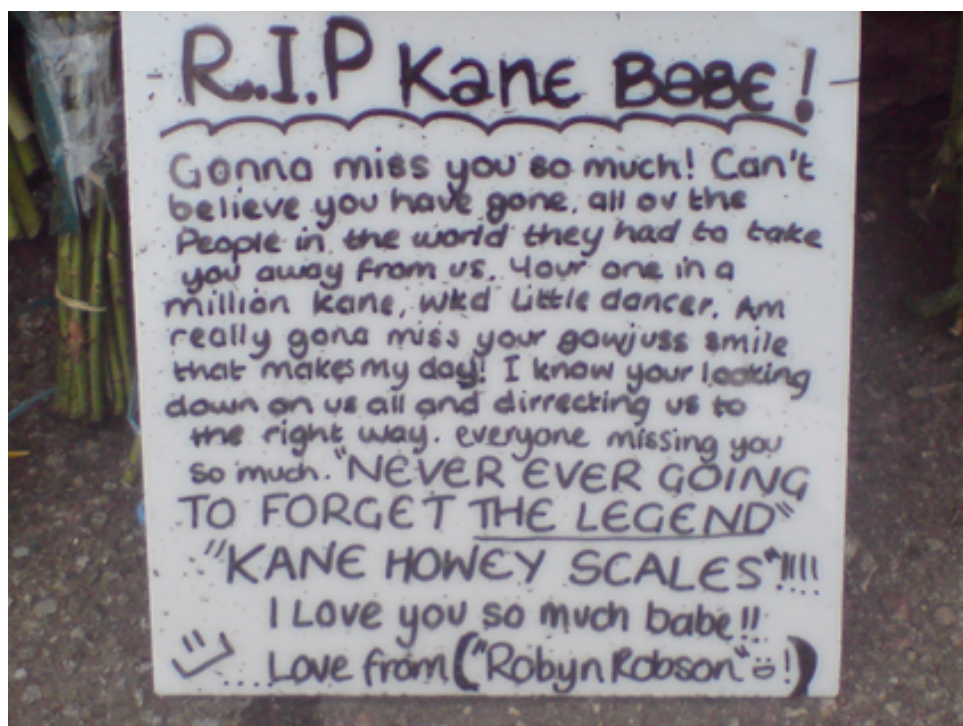 R.I.P Kane BaBe!
Gonna miss you so much! Can't
believe you have gone. all ov the
People in the world they had to take
you away from us. Your one in a
million Kane, wkd Little dancer. Am
really gona miss your gawjuss smile
that makes my day! I know your looking
down on us all and dirrecting us to
the right way. everyone missing you
so much. "NEVER EVER GOING
TO FORGET THE LEGEND"
"KANE HOWEY SCALES"!!!!
I Love you so much babe!!
....Love from ("Robyn Robson" !)